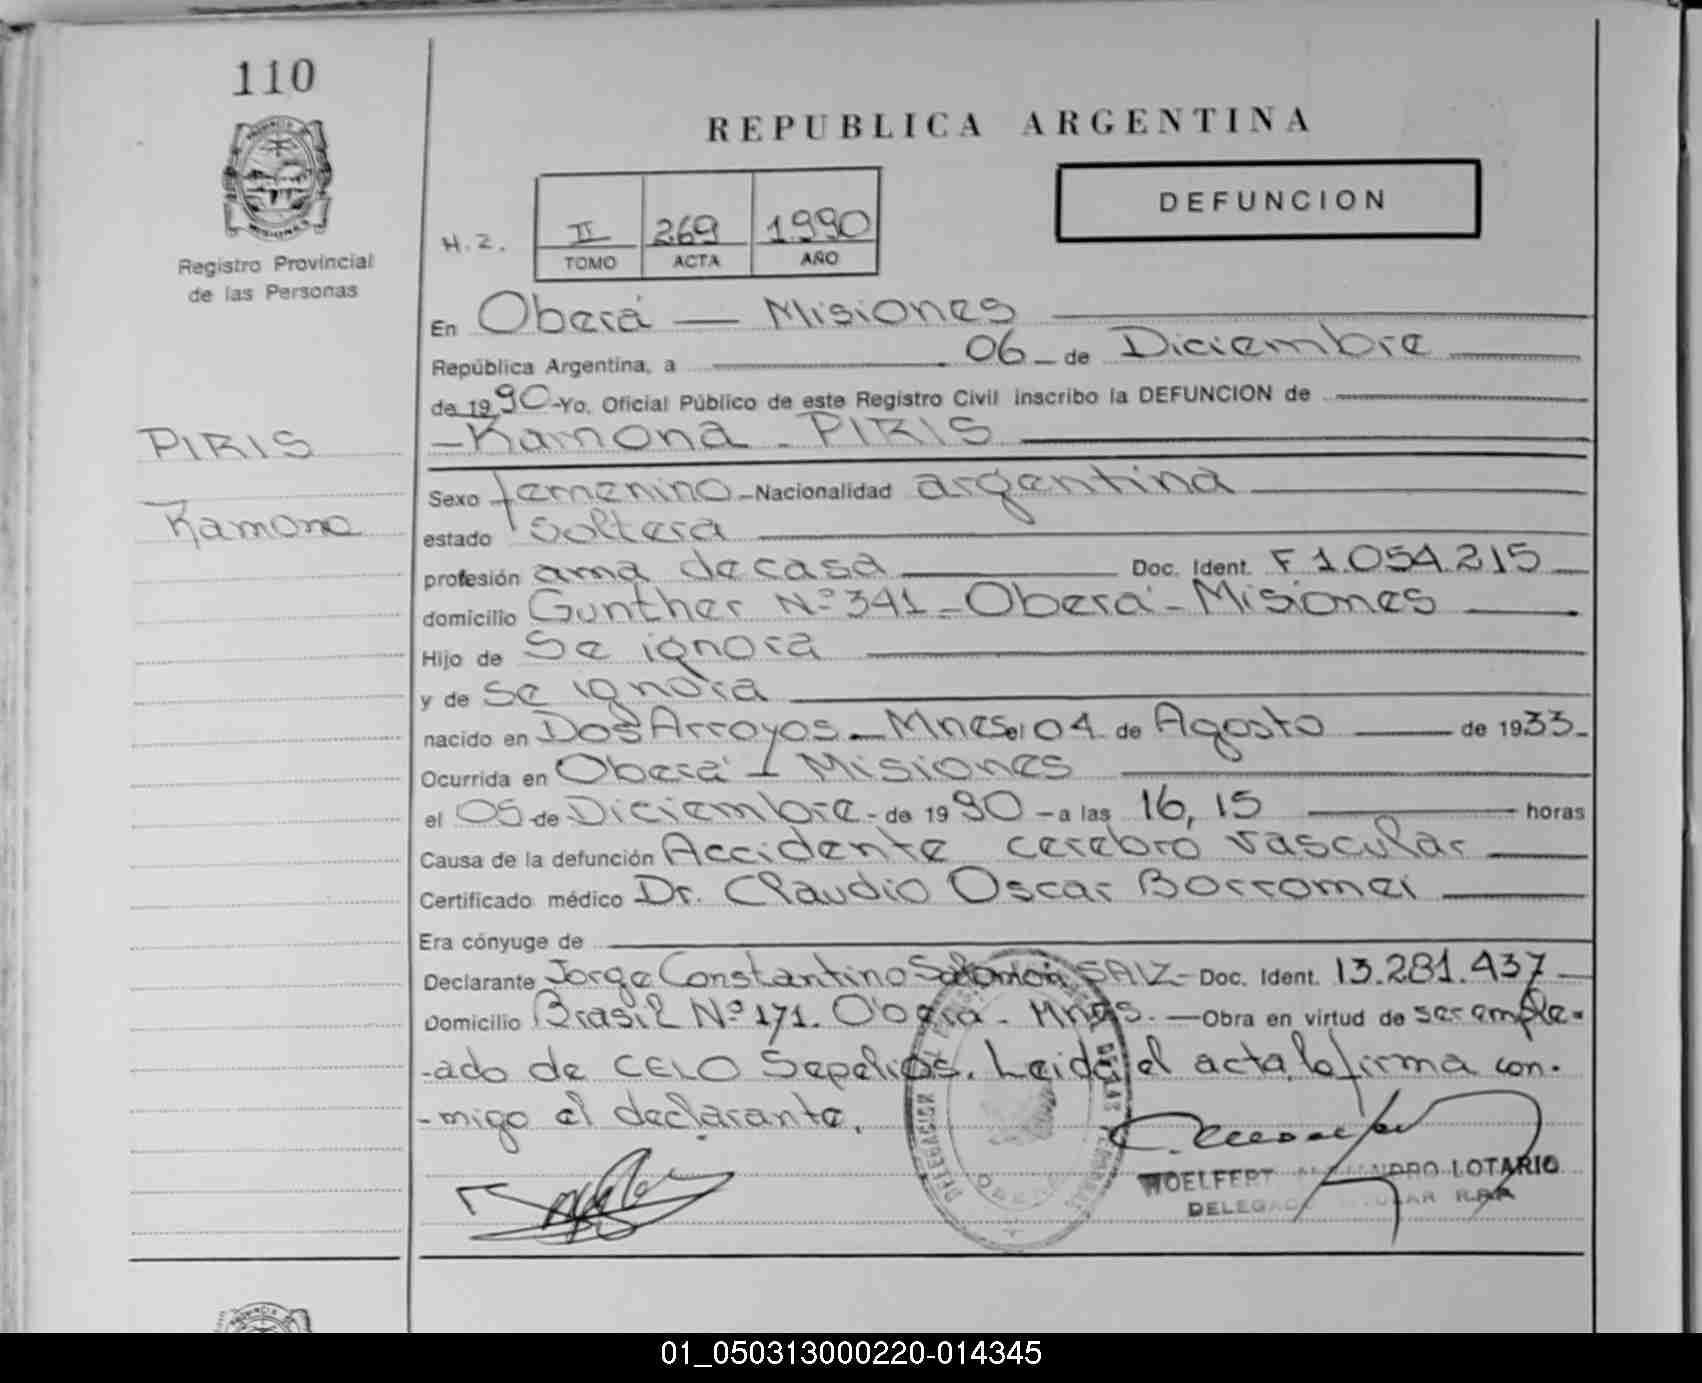 110
REPUBLICA ARGENTINA
DEFUNCION
PROVINCIA DE
MISIONES
Registro Provincial
de las Personas
H.Z.
II 269 1990
TOMO ACTA AÑO
En Oberá — Misiones
República Argentina, a 06 de Diciembre
de 1990 - Yo, Oficial Público de este Registro Civil inscribo la DEFUNCION de
PIRIS
Ramona
- Ramona - PIRIS
Sexo femenino - Nacionalidad argentina
estado soltera
profesión ama de casa Doc. Ident. F 1.054.215
domicilio Gunther Nº 341 - Oberá - Misiones
Hijo de Se ignora
y de Se ignora
nacido en Dos Arroyos - Mnes el 04 de Agosto de 1933 -
Ocurrida en Oberá - Misiones
el 05 de Diciembre - de 1990 - a las 16,15 horas
Causa de la defunción Accidente cerebro vascular
Certificado médico Dr. Claudio Oscar Borromei
Era cónyuge de
Declarante Jorge Constantino Salomón SAIZ - Doc. Ident. 13.281.437
Domicilio Brasil Nº 171. Oberá - Mnes. - Obra en virtud de ser emple-
-ado de CELO Sepelios. Leida el acta, la firma con-
-migo el declarante.
WOELFERT LOTARIO
01_050313000220-014345